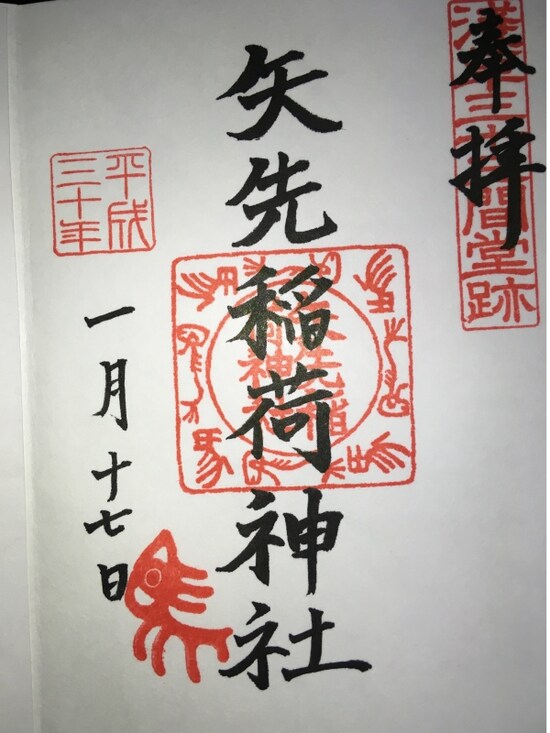 奉拝
浅草三十三間堂跡
矢先稲荷神社
平成
三十年
一月十七日